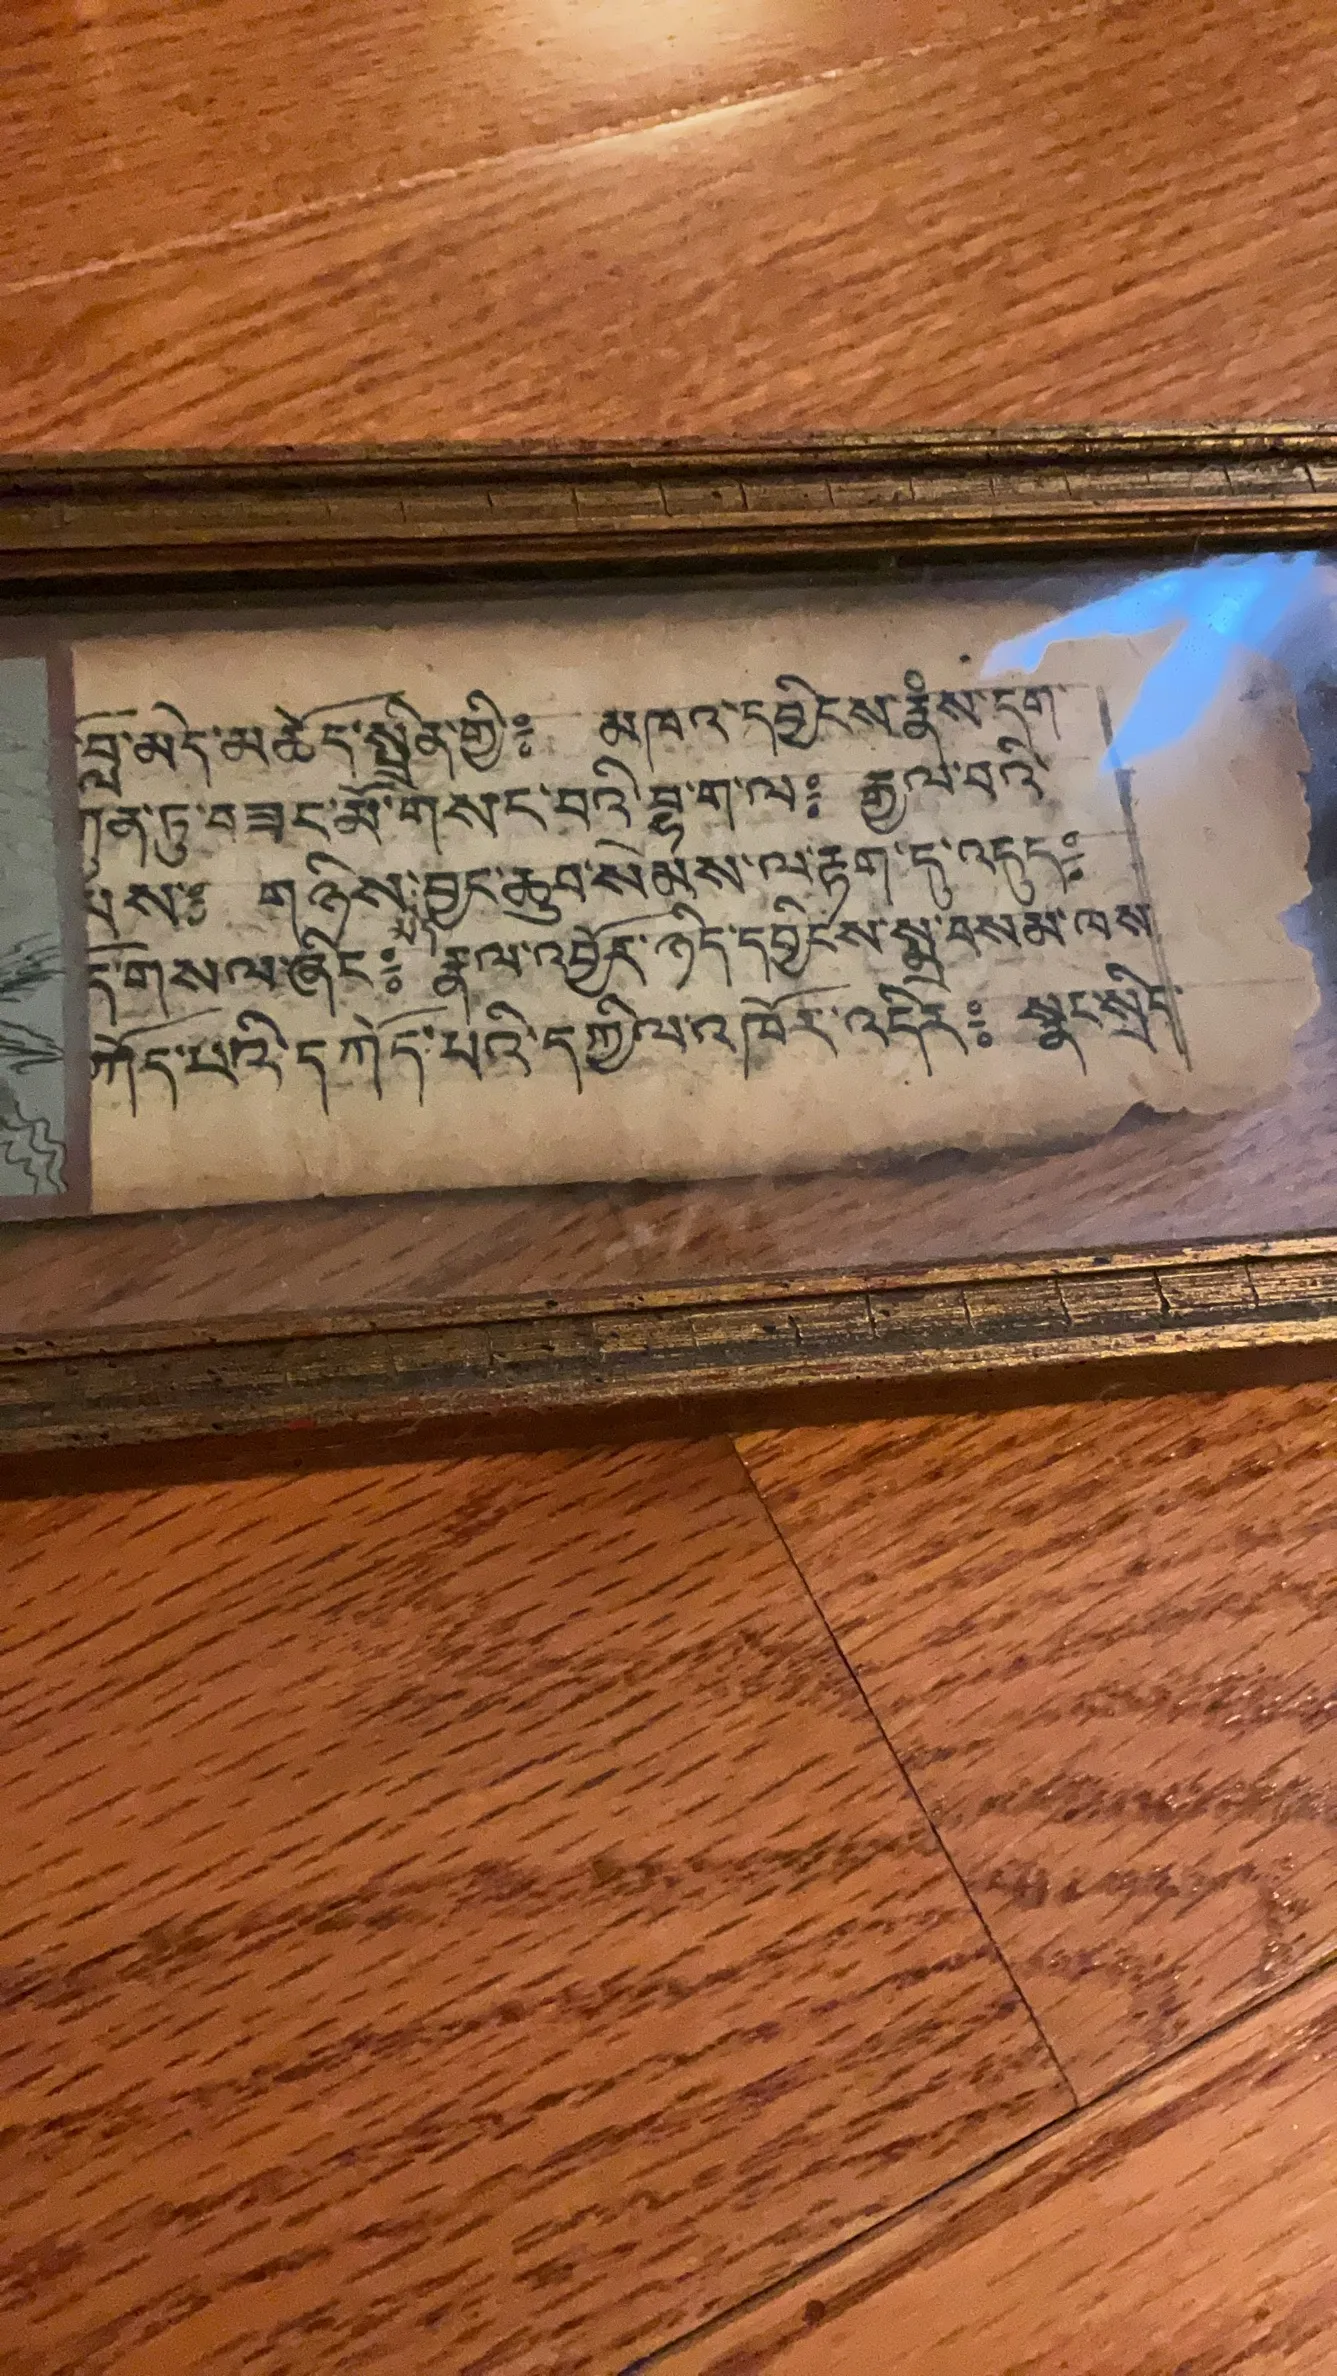 བླ་མེད་མཆོད་སྤྲིན་གྱི༔ མཁའ་དབྱིངས་རྣཾས་དག
ཀུན་ཏུ་བཟང་མོ་གསང་བའི་བྷ་ག་ལ༔ རྒྱལ་བའི
པས༔ གཉིས་བྱང་ཆུབ་སེམས་ལ་རྟག་ཏུ་འདུད༔
གསལ་ཞིང༔ རྣལ་འབྱོར་ཉིད་དབྱིངས་སྨྲ་བསམ་ལས
བཀོད་པའི་དཀྱིལ་འཁོར་འདིར༔ སྣང་སྲིད